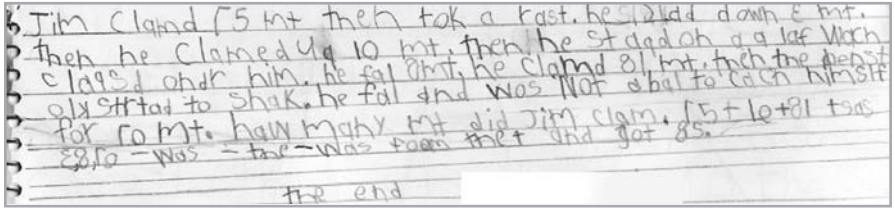 Jim Clamd 15 mt then tok a rast. he sliddd down 3 mt.
then he Clamed up 10 mt. then he stdod on a laf wach
clapsd ondr him. he fal 8mt. he clamd 81 mt. then the
olx strtad to shak. he fal and wos Not abal to cach himslf
for 10 mt. haw mahy mt did Jim clam. 15+10+81
3,8,10 - was - the - was foom thet and got 85.
the end